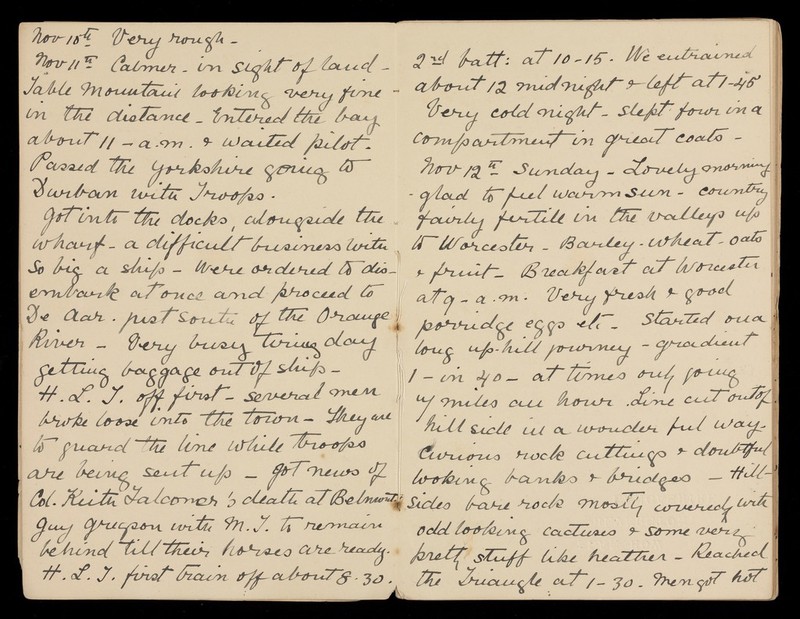 Nov 10th Very rough -
Nov 11th Calmer - in sight of land -
Table Mountain looking very fine -
in the distance - Entered the bay
about 11 - a.m. & waited pilot -
Passed the Yorkshire going to
Durban with Troops.
Got into the docks, alongside the
wharf - a difficult business with
so big a ship - Were ordered to dis-
embark at once and proceed to
De Aar. just south of the Orange
River - Very busy tiring day
getting baggage out of ship -
H.L.I. off first - several men
broke loose into the town - They are
to guard the line while troops
are being sent up - got news of
Col. Keith Falconer's death at Belmont.
Guy Grugson with M.I. to remain
behind till their horses are ready.
H.L.I. first train off about 8.30.
2nd batt: at 10-15. We entrained
about 12 midnight & left at 1-45
Very cold night - slept four in a
compartment in great coats -
Nov 12th Sunday - Lovely morning
- glad to feel warm sun - country
fairly fertile in the valleys up
to Worcester - Barley - wheat - oats
& fruit - Breakfast at Worcester
at 9 - a.m. Very fresh & good
porridge eggs etc - Started on a
long up-hill journey - gradient
1 - in 40 - at times only going
miles an hour. Line cut out of
hill side in a wonderful way -
Curious rock cuttings & doubtful
looking banks & bridges - Hill-
sides bare rock mostly covered with
odd looking cactuses & some very
pretty stuff like heather - Reached
the Triangle at 1-30. Men got hot